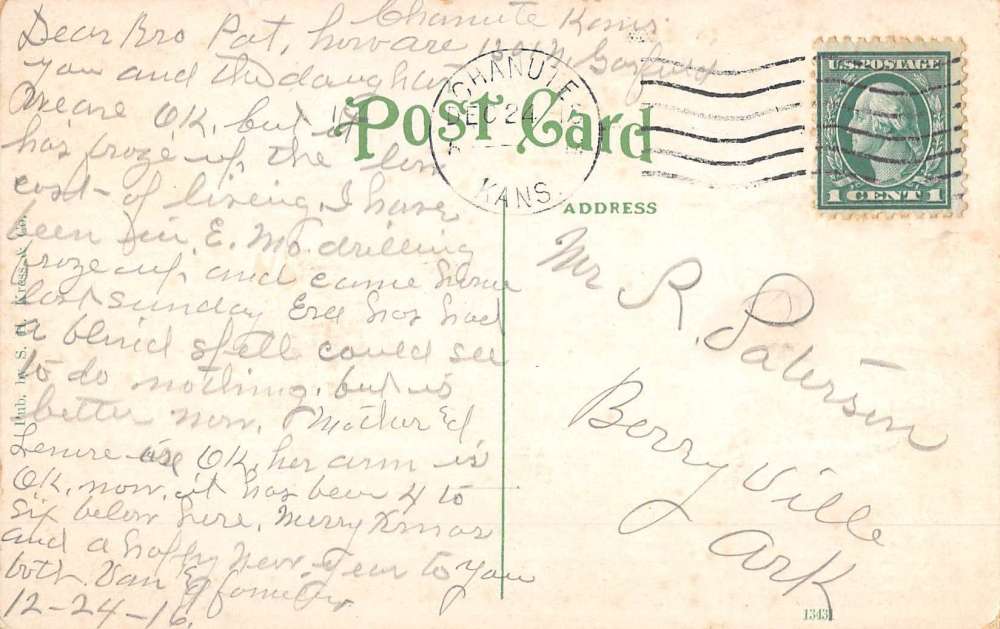 Chanute Kans.
Dear Bro Pat, how are
you and the daughter
We are O.K. but it
has froze up, the low
cost of living, I have
been in E. Mo. drilling
froze up, and came home
last sunday Eva has had
a blind spell could see
to do nothing, but is
better now. Mother Ed
Lenore are OK, her arm is
OK, now, it has been 4 to
six below here. Merry Xmas
and a happy New-Year to you
both. Van &
12-24-16.
Post Card
CHANUTE
DEC 24
KANS.
U.S. POSTAGE
1 CENT 1
ADDRESS
Mr R. Paterson
Berry Ville
Ark
Pub. by S. H. Kress & Co.
13431